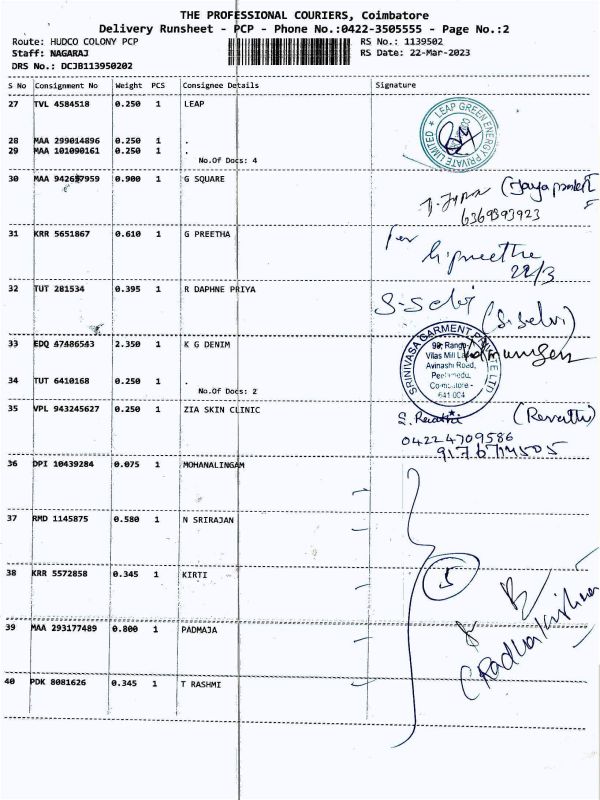 THE PROFESSIONAL COURIERS, Coimbatore
Delivery Runsheet - PCP - Phone No.:0422-3505555 - Page No.:2
Route: HUDCO COLONY PCP RS No.: 1139502
Staff: NAGARAJ RS Date: 22-Mar-2023
DRS No.: DCJB113950202
S No Consignment No Weight PCS Consignee Details Signature
27 TVL 4584518 0.250 1 LEAP
LEAP GREEN ENERGY PRIVATE LIMITED
28 MAA 299014896 0.250 1 .
29 MAA 101090161 0.250 1 .
No.Of Docs: 4
30 MAA 942657959 0.900 1 G SQUARE
6369393923
31 KRR 5651867 0.610 1 G PREETHA
For
G.preetha
22/3
32 TUT 281534 0.395 1 R DAPHNE PRIYA
S.Selvi (S.Selvi)
33 EDQ 47486543 2.350 1 K G DENIM
SRINIVASA GARMENT PRIVATE LTD
Vilas Mill
Avinashi Road,
Coimbatore -
641 004
34 TUT 6410168 0.250 1 .
No.Of Docs: 2
35 VPL 943245627 0.250 1 ZIA SKIN CLINIC
S. Revathi (Revathi)
04224709586
36 DPI 10439284 0.075 1 MOHANALINGAM
37 RMD 1145875 0.580 1 N SRIRAJAN
38 KRR 5572858 0.345 1 KIRTI
5
39 MAA 293177489 0.800 1 PADMAJA
(Radhakrishna
40 PDK 8081626 0.345 1 T RASHMI